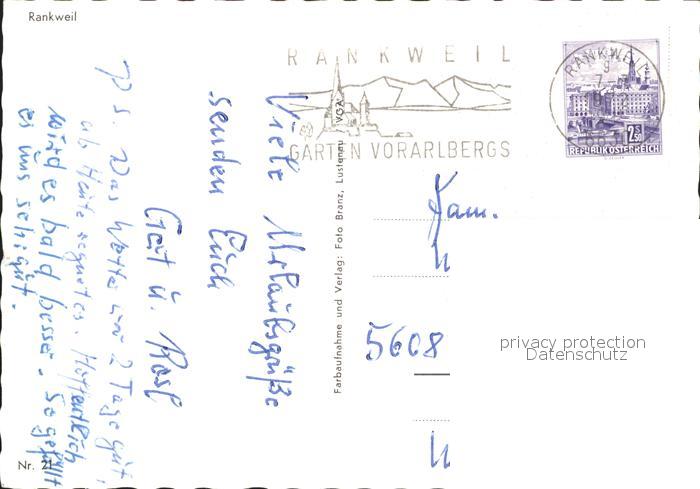 Rankweil
RANKWEIL
VGA
GARTEN VORARLBERGS
RANKWEIL
2.50
REPUBLIK ÖSTERREICH
Viele Urlaubsgrüße
senden Euch
u. Rosl
P.S. Das Wetter war 2 Tage gut,
ab Heute regnet es. Hoffentlich
wird es bald besser. So gefällt
es uns sehr gut.
Farbaufnahme und Verlag: Foto Branz, Lustenau
Fam.
5608
privacy protection
Datenschutz
Nr. 21